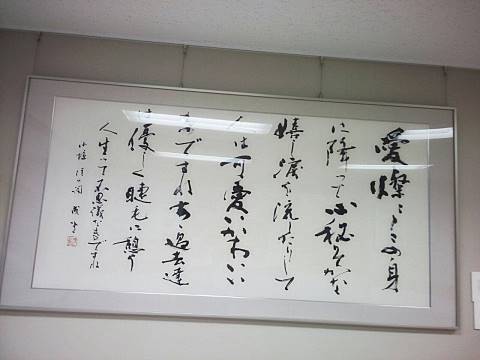 愛燦々とこの身
に降って心秘そかな
嬉し涙を流したりして
人は可愛いかわいい
ものですね ああ 過去達
は優しく睫毛に憩う
人生って不思議なものですね
小椋佳の詞